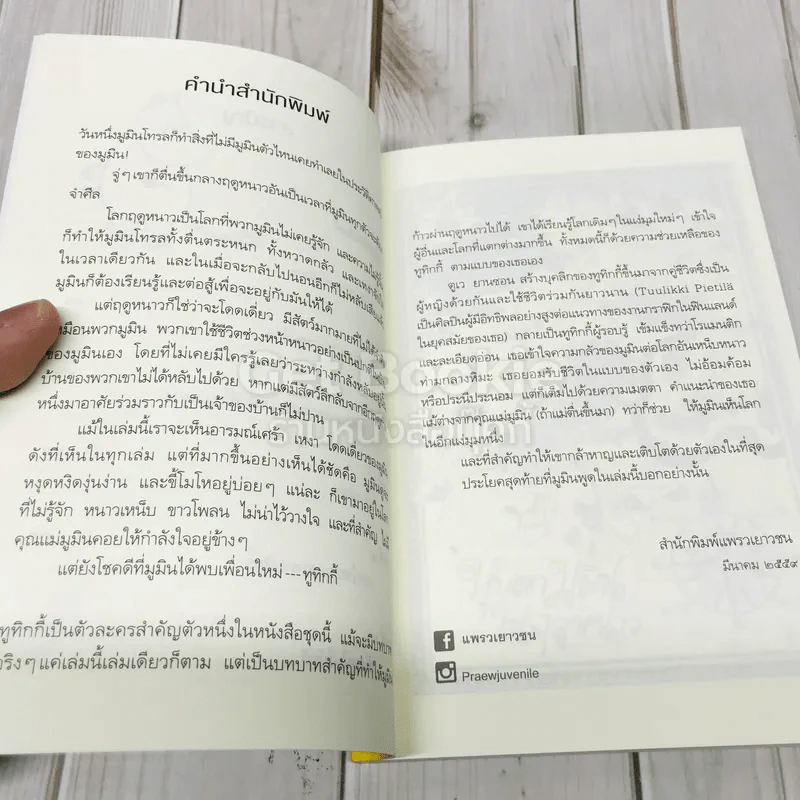 คำนำสำนักพิมพ์
วันหนึ่งมูมินโทรลก็ทำสิ่งที่ไม่มีมูมินตัวไหนเคยทำเลยในประวัติศาสตร์
ของมูมิน!
จู่ๆ เขาก็ตื่นขึ้นกลางฤดูหนาวอันเป็นเวลาที่มูมินทุกตัว
จำศีล
โลกฤดูหนาวเป็นโลกที่พวกมูมินไม่เคยรู้จัก และความไม่
ก็ทำให้มูมินโทรลทั้งตื่นตระหนก ทั้งหวาดกลัว และเหงา
ในเวลาเดียวกัน และในเมื่อจะกลับไปนอนอีกก็ไม่หลับเสีย
มูมินก็ต้องเรียนรู้และต่อสู้เพื่อจะอยู่กับมันให้ได้
แต่ฤดูหนาวก็ใช่ว่าจะโดดเดี่ยว มีสัตว์มากมายที่ไม่ได้
เหมือนพวกมูมิน พวกเขาใช้ชีวิตช่วงหน้าหนาวอย่างเป็นปกติ
ของมูมินเอง โดยที่ไม่เคยมีใครรู้เลยว่าระหว่างกำลังหลับ
บ้านของพวกเขาไม่ได้หลับไปด้วย หากแต่มีสัตว์ลึกลับจาก
หนึ่งมาอาศัยร่วมราวกับเป็นเจ้าของบ้านก็ไม่ปาน
แม้ในเล่มนี้เราจะเห็นอารมณ์เศร้า เหงา โดดเดี่ยวของ
ดังที่เห็นในทุกเล่ม แต่ที่มากขึ้นอย่างเห็นได้ชัดคือ มูมิน
หงุดหงิดงุ่นง่าน และขี้โมโหอยู่บ่อยๆ แน่ละ ก็เขามาอยู่ใน
ที่ไม่รู้จัก หนาวเหน็บ ขาวโพลน ไม่น่าไว้วางใจ และที่สำคัญ ไม่มี
คุณแม่มูมินคอยให้กำลังใจอยู่ข้างๆ
แต่ยังโชคดีที่มูมินได้พบเพื่อนใหม่ ---ทูทิกกี้
ทูทิกกี้เป็นตัวละครสำคัญตัวหนึ่งในหนังสือชุดนี้ แม้จะมีบทบาท
จริงๆ แค่เล่มนี้เล่มเดียวก็ตาม แต่เป็นบทบาทสำคัญที่ทำให้มูมิน
ก้าวผ่านฤดูหนาวไปได้ เขาได้เรียนรู้โลกเดิมๆ ในแง่มุมใหม่ๆ เข้าใจ
ผู้อื่นและโลกที่แตกต่างมากขึ้น ทั้งหมดนี้ก็ด้วยความช่วยเหลือของ
ทูทิกกี้ ตามแบบของเธอเอง
ตูเว ยานซอน สร้างบุคลิกของทูทิกกี้ขึ้นมาจากคู่ชีวิตซึ่งเป็น
ผู้หญิงด้วยกันและใช้ชีวิตร่วมกันยาวนาน (Tuulikki Pietilä
เป็นศิลปินผู้มีอิทธิพลอย่างสูงต่อแนวทางของงานกราฟิกในฟินแลนด์
ในยุคสมัยของเธอ) กลายเป็นทูทิกกี้ผู้รอบรู้ เข้มแข็งทว่าโรแมนติก
และละเอียดอ่อน เธอเข้าใจความกลัวของมูมินต่อโลกอันเหน็บหนาว
ท่ามกลางหิมะ เธอยอมรับชีวิตในแบบของตัวเอง ไม่อ้อมค้อม
หรือประนีประนอม แต่ก็เต็มไปด้วยความเมตตา คำแนะนำของเธอ
แม้ต่างจากคุณแม่มูมิน (ถ้าแม่ตื่นขึ้นมา) ทว่าก็ช่วย ให้มูมินเห็นโลก
ในอีกแง่มุมหนึ่ง
และที่สำคัญทำให้เขากล้าหาญและเติบโตด้วยตัวเองในที่สุด
ประโยคสุดท้ายที่มูมินพูดในเล่มนี้บอกอย่างนั้น
สำนักพิมพ์แพรวเยาวชน
มีนาคม ๒๕๕๙
แพรวเยาวชน
Praewjuvenile